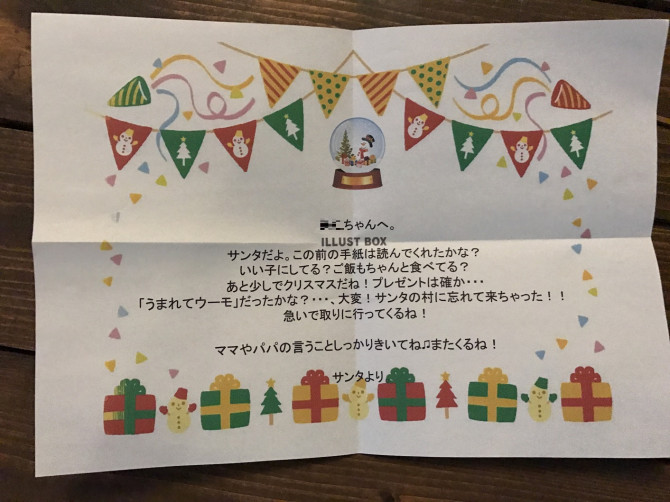 ちゃんへ。
ILLUST BOX
サンタだよ。この前の手紙は読んでくれたかな？
いい子にしてる？ご飯もちゃんと食べてる？
あと少しでクリスマスだね！プレゼントは確か・・・
「うまれてウーモ」だったかな？・・・、大変！サンタの村に忘れて来ちゃった！！
急いで取りに行ってくるね！
ママやパパの言うことしっかりきいてね♫またくるね！
サンタより